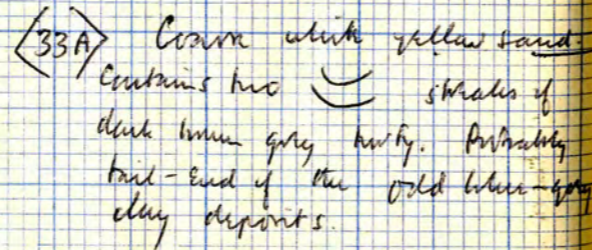 33A Coarse white yellow sand.
Contains two streaks of
dark brown grey turfy. Probably
tail-end of the odd blue-grey
clay deposits.